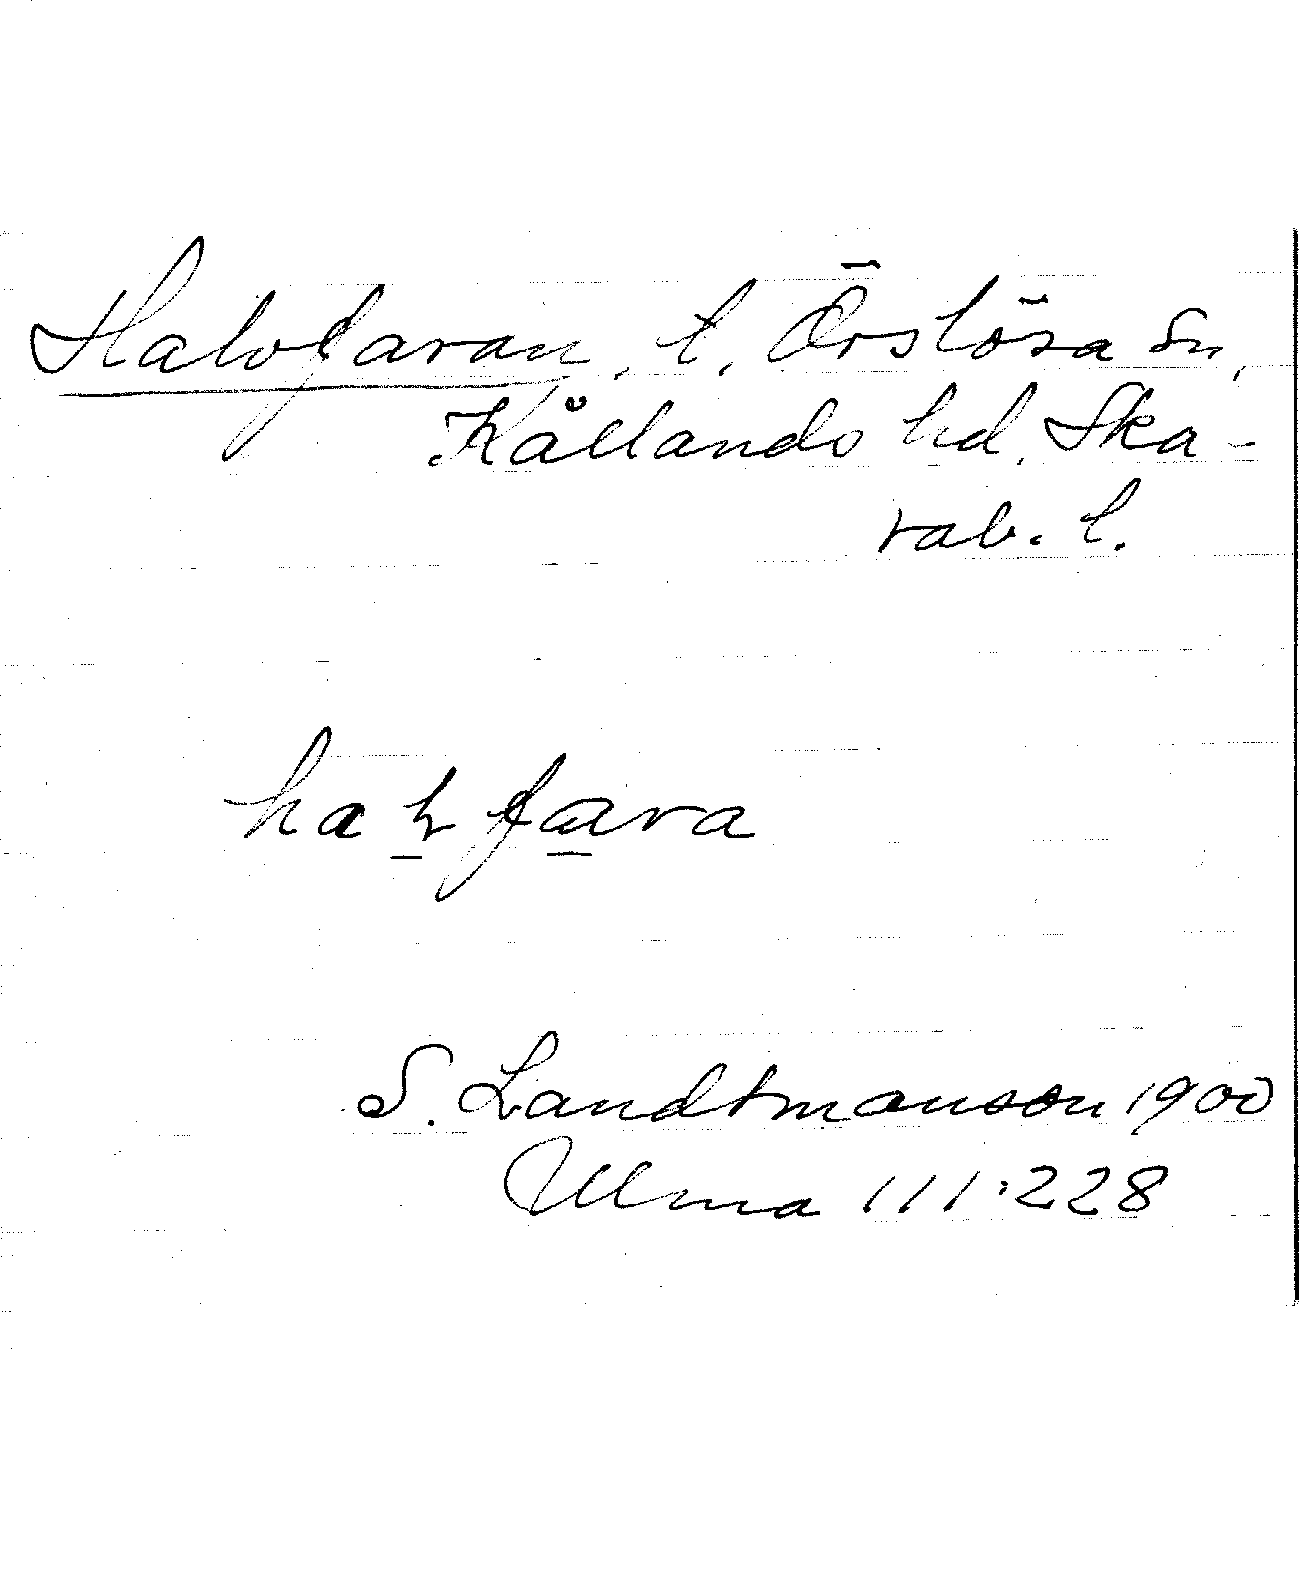 Halvfaran, l, Örslösa sn,
Kållands hd. Ska-
rab. l.
hatfara
S. Landtmanson 1900
Ulma 111:228